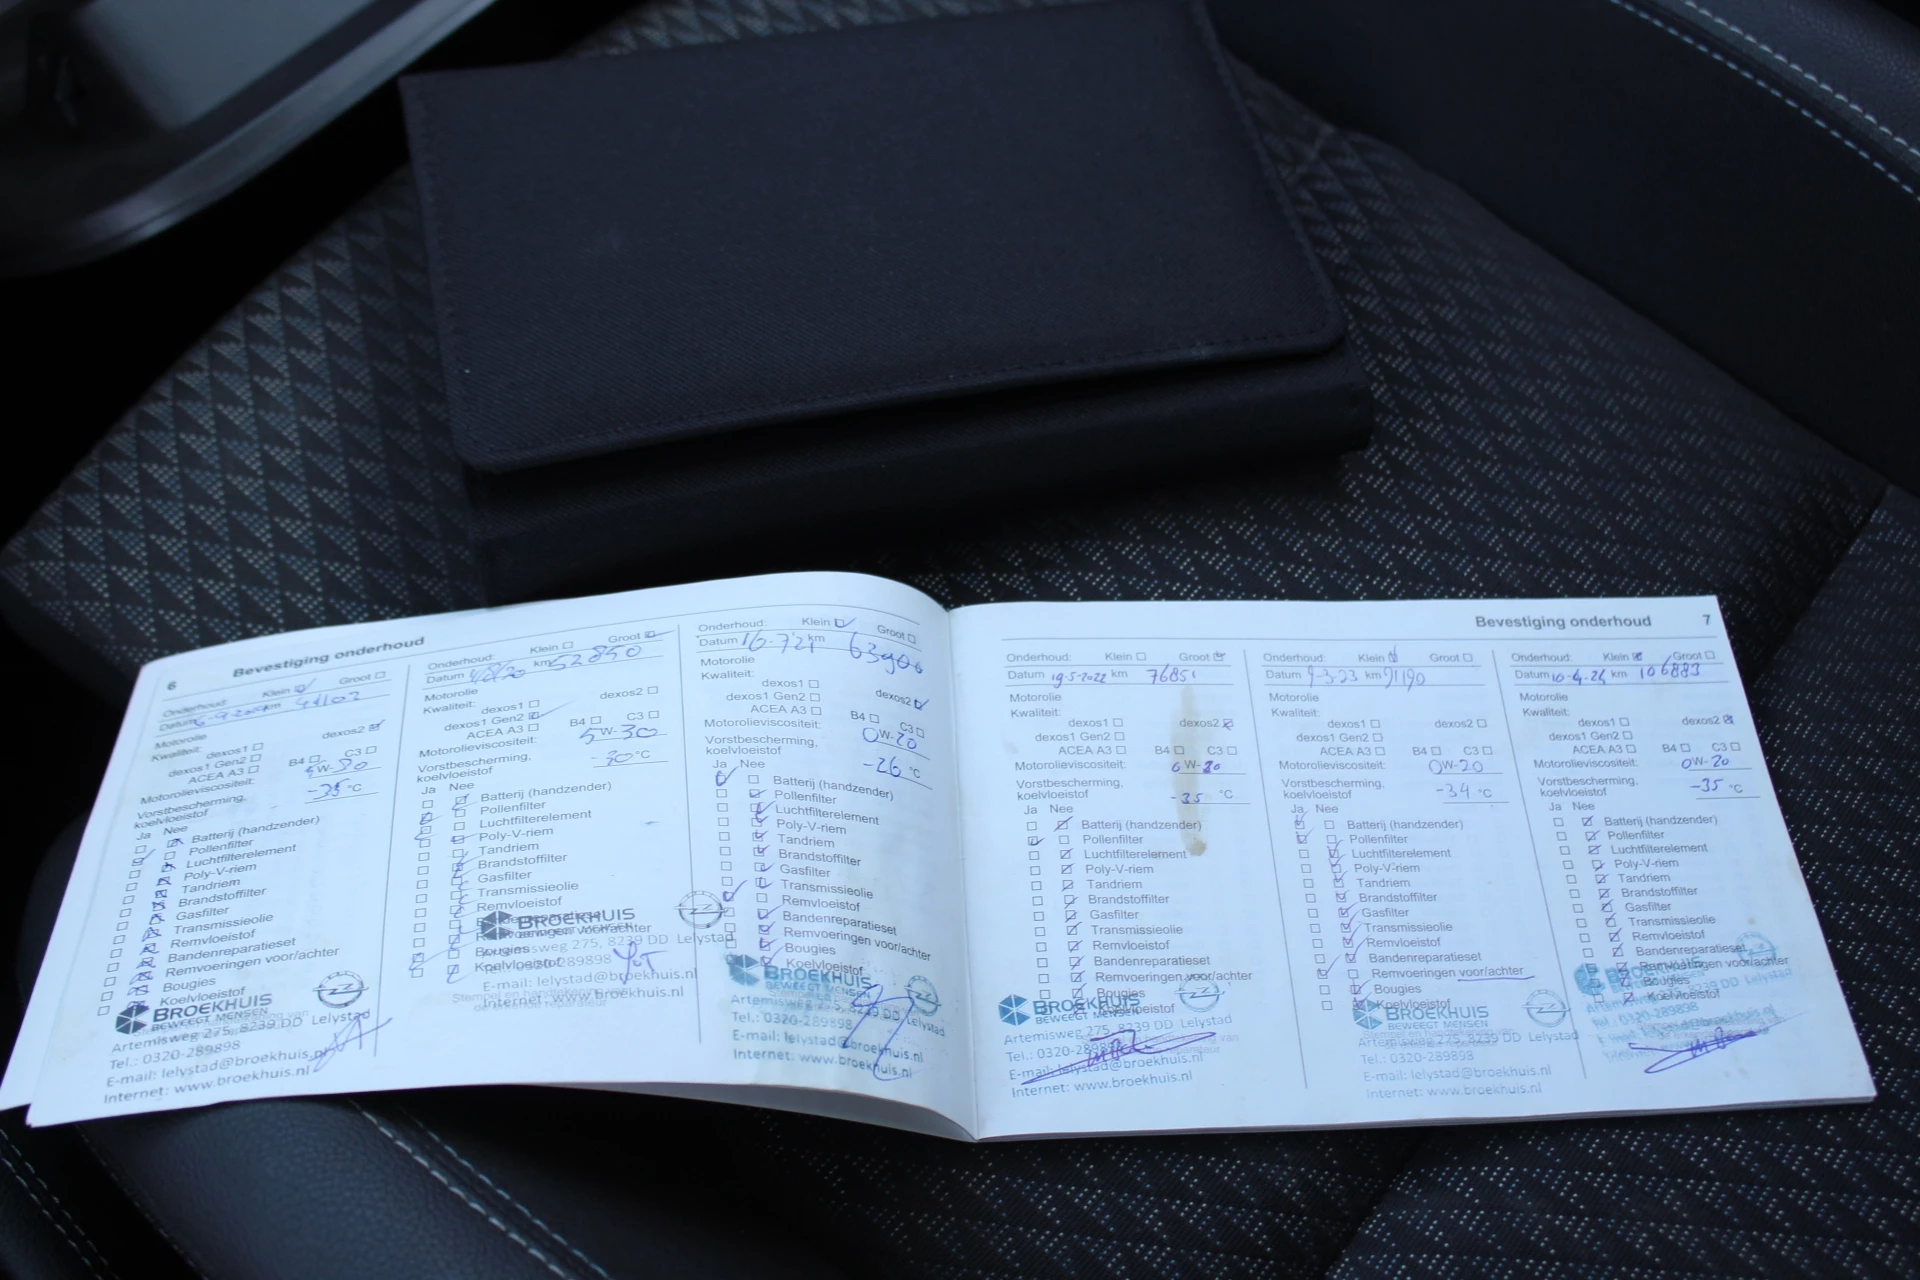 6 Bevestiging onderhoud
Onderhoud: Klein Groot
Datum km 41102
Motorolie
Kwaliteit: dexos1 dexos2
dexos1 Gen2
ACEA A3 B4 C3
Motorolieviscositeit: W-30
Vorstbescherming, koelvloeistof °C
Ja Nee
Batterij (handzender)
Pollenfilter
Luchtfilterelement
Poly-V-riem
Tandriem
Brandstoffilter
Gasfilter
Transmissieolie
Remvloeistof
Bandenreparatieset
Remvoeringen voor/achter
Bougies
Koelvloeistof
BROEKHUIS
BEWEEGT MENSEN
Artemisweg 275, 8239 DD Lelystad
Tel.: 0320-289898
E-mail: lelystad@broekhuis.nl
Internet: www.broekhuis.nl
Onderhoud: Klein Groot
Datum km 52850
Motorolie
Kwaliteit: dexos1 dexos2
dexos1 Gen2
ACEA A3 B4 C3
Motorolieviscositeit: 5W-30
Vorstbescherming, koelvloeistof -30 °C
Ja Nee
Batterij (handzender)
Pollenfilter
Luchtfilterelement
Poly-V-riem
Tandriem
Brandstoffilter
Gasfilter
Transmissieolie
Remvloeistof
Bandenreparatieset
Remvoeringen voor/achter
Bougies
Koelvloeistof
BROEKHUIS
BEWEEGT MENSEN
Artemisweg 275, 8239 DD Lelystad
0320-289898
E-mail: lelystad@broekhuis.nl
Internet: www.broekhuis.nl
Onderhoud: Klein Groot
Datum km 63900
Motorolie
Kwaliteit:
dexos1 dexos2
dexos1 Gen2
ACEA A3 B4 C3
Motorolieviscositeit: 0W-20
Vorstbescherming,
koelvloeistof -26 °C
Ja Nee
Batterij (handzender)
Pollenfilter
Luchtfilterelement
Poly-V-riem
Tandriem
Brandstoffilter
Gasfilter
Transmissieolie
Remvloeistof
Bandenreparatieset
Remvoeringen voor/achter
Bougies
Koelvloeistof
BROEKHUIS
BEWEEGT MENSEN
Artemisweg 275, 8239 DD Lelystad
Tel.: 0320-289898
E-mail: lelystad@broekhuis.nl
Internet: www.broekhuis.nl
Bevestiging onderhoud 7
Onderhoud: Klein Groot
Datum 19-5-2022 km 76851
Motorolie
Kwaliteit:
dexos1 dexos2
dexos1 Gen2
ACEA A3 B4 C3
Motorolieviscositeit: 0W-20
Vorstbescherming,
koelvloeistof -35 °C
Ja Nee
Batterij (handzender)
Pollenfilter
Luchtfilterelement
Poly-V-riem
Tandriem
Brandstoffilter
Gasfilter
Transmissieolie
Remvloeistof
Bandenreparatieset
Remvoeringen voor/achter
Bougies
Koelvloeistof
BROEKHUIS
BEWEEGT MENSEN
Artemisweg 275, 8239 DD Lelystad
Tel.: 0320-289898
E-mail: lelystad@broekhuis.nl
Internet: www.broekhuis.nl
Onderhoud: Klein Groot
Datum 9-3-23 km 91190
Motorolie
Kwaliteit:
dexos1 dexos2
dexos1 Gen2
ACEA A3 B4 C3
Motorolieviscositeit: 0W-20
Vorstbescherming,
koelvloeistof -34 °C
Ja Nee
Batterij (handzender)
Pollenfilter
Luchtfilterelement
Poly-V-riem
Tandriem
Brandstoffilter
Gasfilter
Transmissieolie
Remvloeistof
Bandenreparatieset
Remvoeringen voor/achter
Bougies
Koelvloeistof
BROEKHUIS
BEWEEGT MENSEN
Artemisweg 275, 8239 DD Lelystad
Tel.: 0320-289898
E-mail: lelystad@broekhuis.nl
Internet: www.broekhuis.nl
Onderhoud: Klein Groot
Datum 10-4-24 km 106883
Motorolie
Kwaliteit:
dexos1 dexos2
dexos1 Gen2
ACEA A3 B4 C3
Motorolieviscositeit: 0W-20
Vorstbescherming,
koelvloeistof -35 °C
Ja Nee
Batterij (handzender)
Pollenfilter
Luchtfilterelement
Poly-V-riem
Tandriem
Brandstoffilter
Gasfilter
Transmissieolie
Remvloeistof
Bandenreparatieset
Remvoeringen voor/achter
Bougies
Koelvloeistof